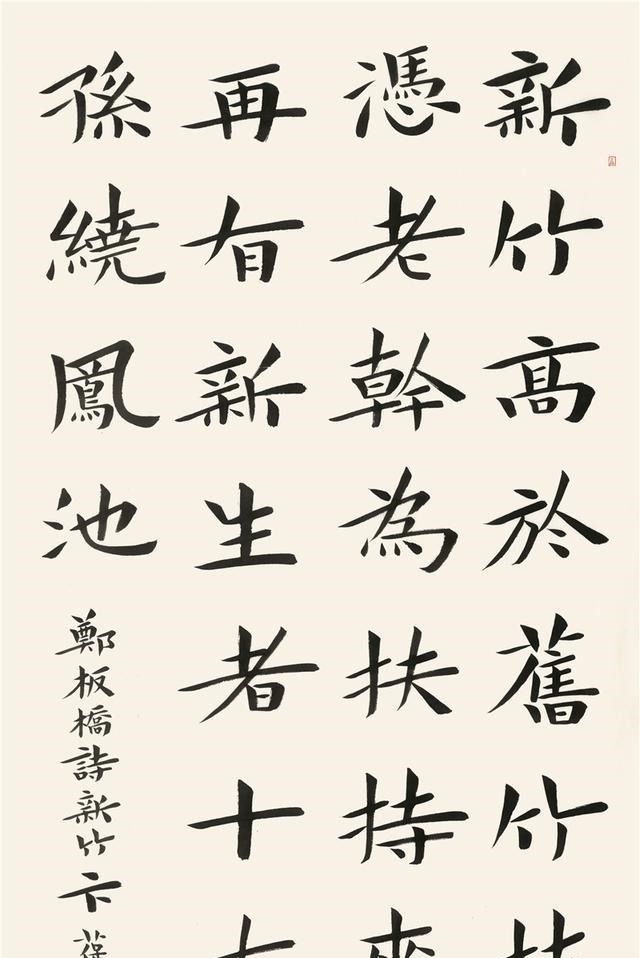 新竹高於舊竹
憑老幹為扶持
再有新生者十
孫繞鳳池
鄭板橋詩新竹卞